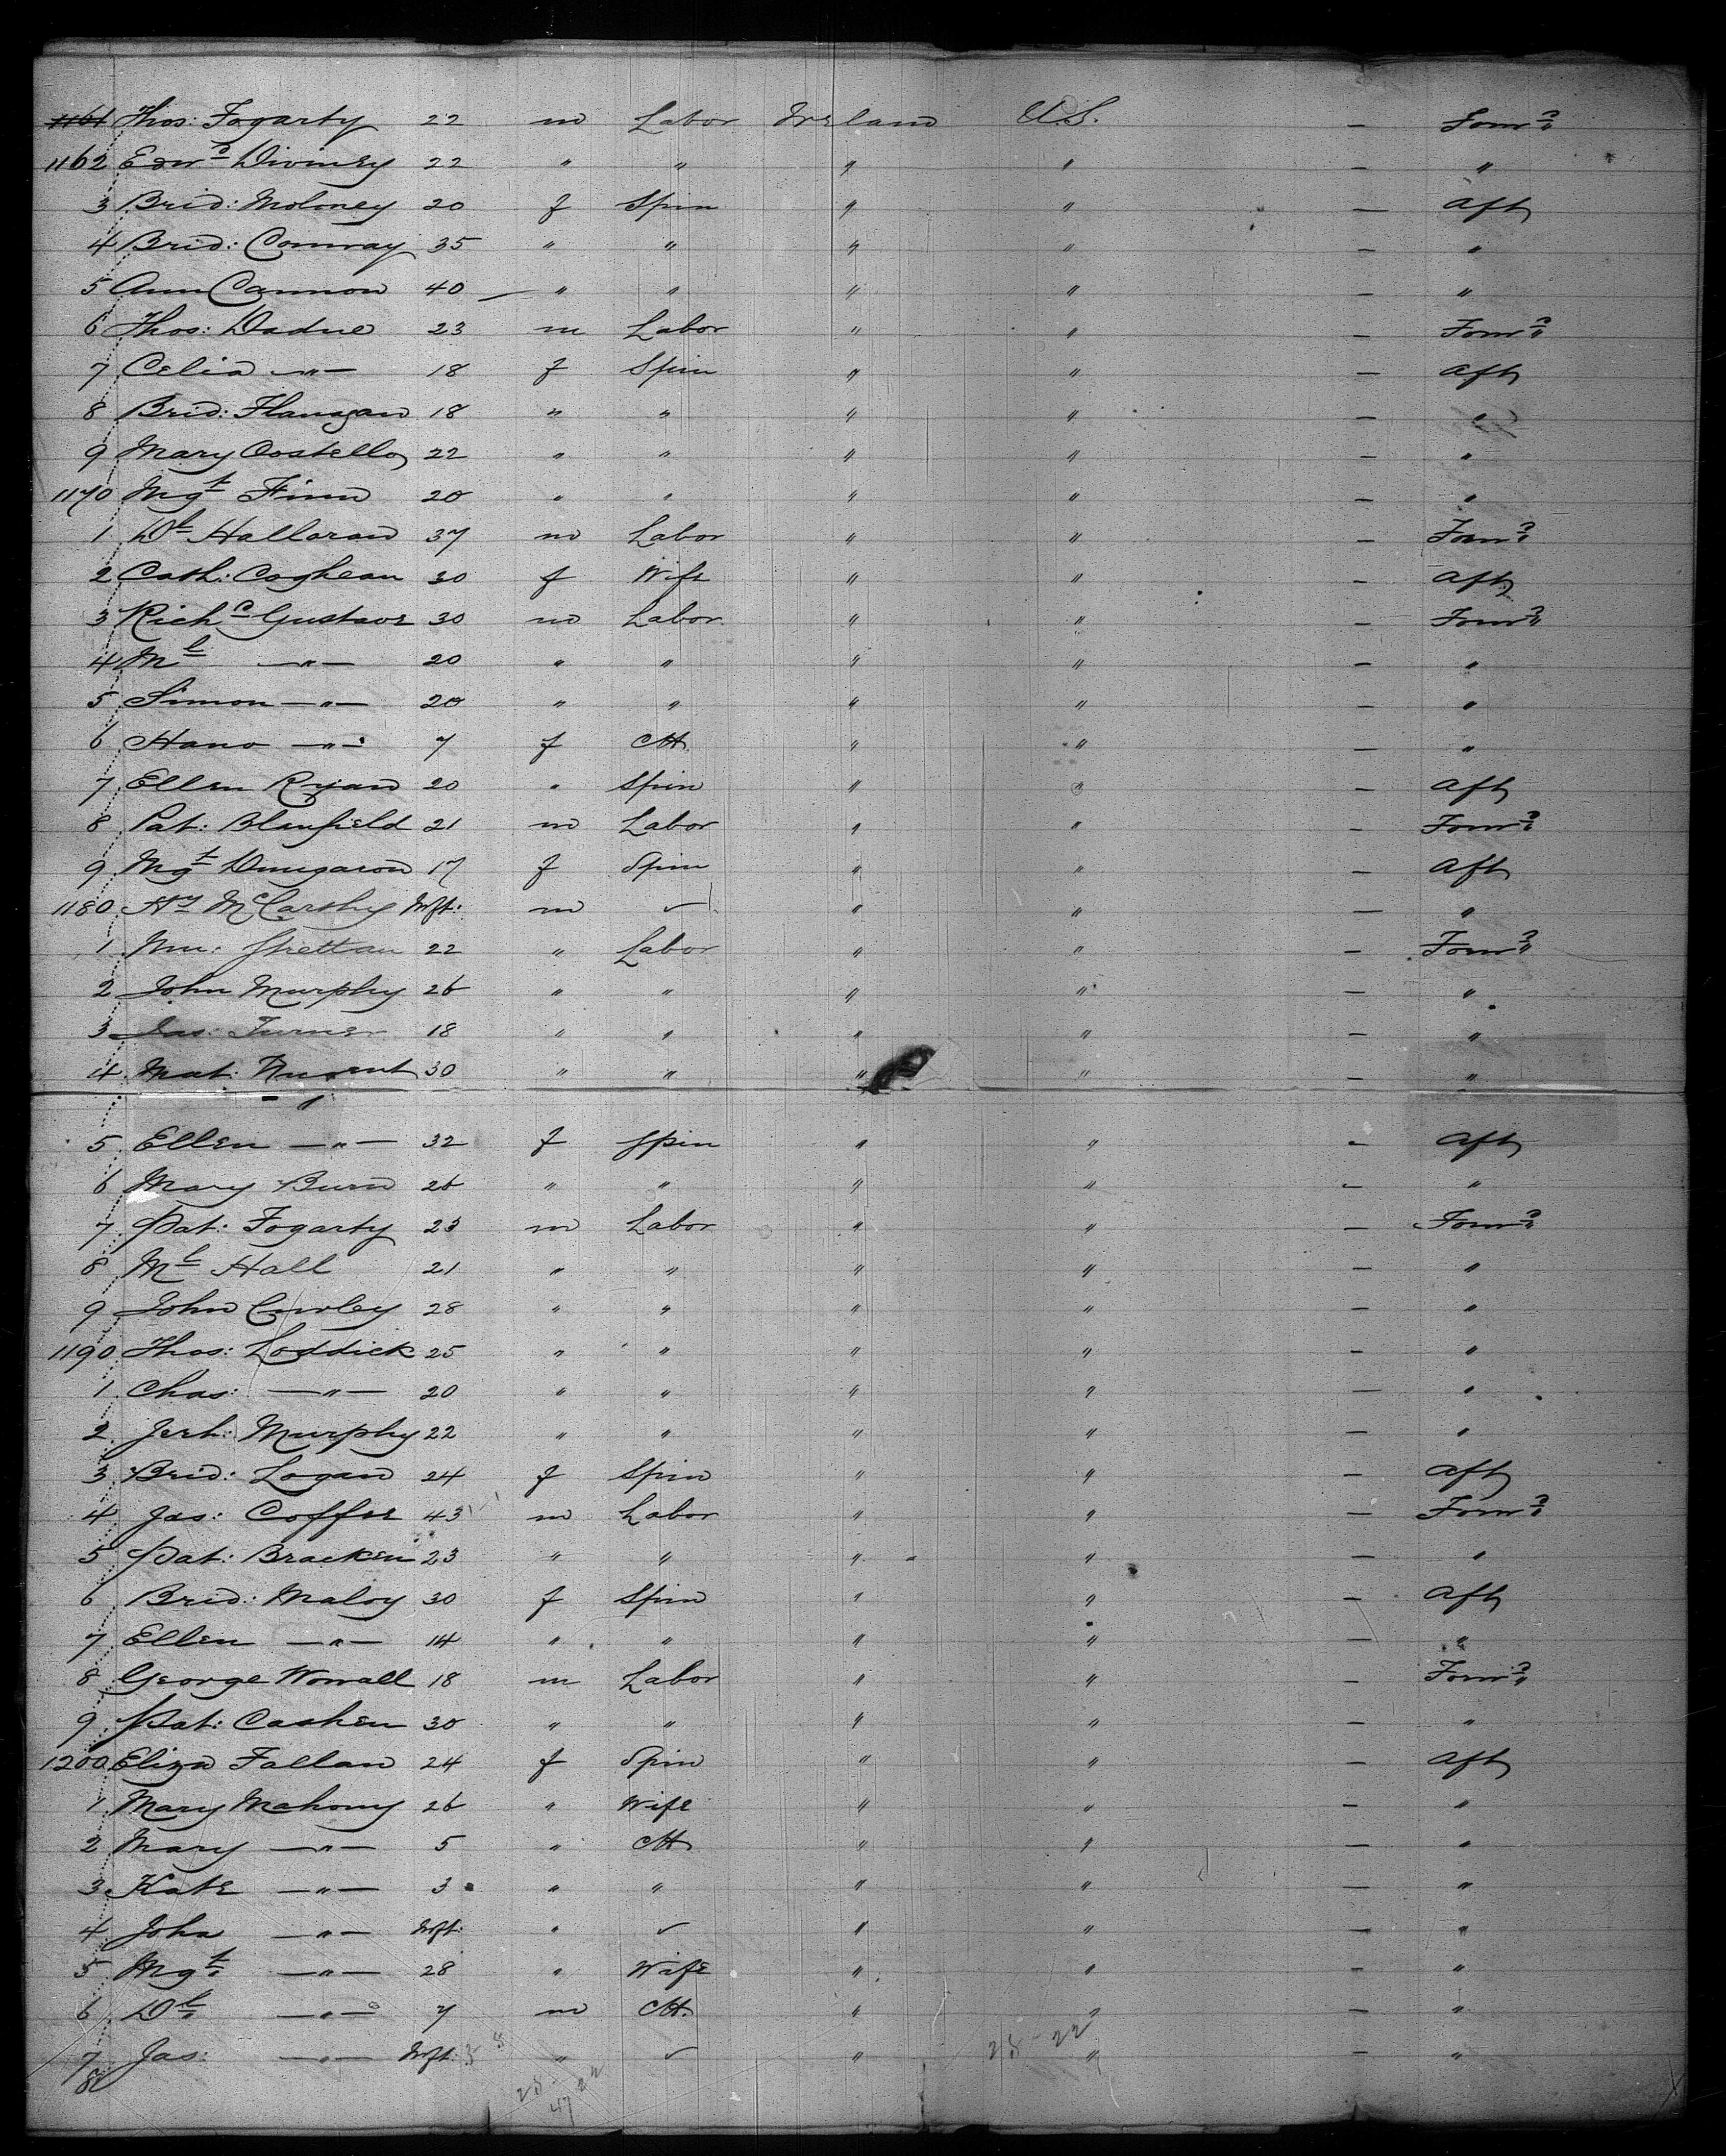 1161 Thos: Fogarty 22 m Labor Ireland U.S. — Forwd
1162 Edwd Diviney 22 " " " " — "
3 Brid: Moloney 20 f Spin " " — Aft
4 Brid: Conway 35 " " " " — "
5 Ann Cannon 40 — " " " " — "
6 Thos: Dadue 23 m Labor " " — Forwd
7 Celia —"— 18 f Spin " " — Aft
8 Brid: Flanagan 18 " " " " — "
9 Mary Costello 22 " " " " — "
1170 Mgt Finn 20 " " " " — "
1 Dl Halloran 37 m Labor " " — Forwd
2 Cath: Coghean 30 f Wife " " — Aft
3 Richd Gustave 30 m Labor " " — Forwd
4 Ml —"— 20 " " " " — "
5 Simon —"— 20 " " " " — "
6 Hano —"— 7 f Ch " " — "
7 Ellen Ryan 20 " Spin " " — Aft
8 Pat: Blanfield 21 m Labor " " — Forwd
9 Mgt 17 f Spin " " — Aft
1180 Hy McCarthy Inft: m ✓ " " — "
1 Wm: Shettan 22 " Labor " " — Forwd
2 John Murphy 26 " " " " — "
3 Jas: Turner 18 " " " " — "
4 Mat: Nugent 30 " " " " — "
5 Ellen —"— 32 f Spin " " — Aft
6 Mary Burn 26 " " " " — "
7 Pat: Fogarty 23 m Labor " " — Forwd
8 Ml Hall 21 " " " " — "
9 John Curley 28 " " " " — "
1190 Thos: Loddick 25 " " " " — "
1 Chas: —"— 20 " " " " — "
2 Jerh: Murphy 22 " " " " — "
3 Brid: Logan 24 f Spin " " — Aft
4 Jas: Coffee 43 m Labor " " — Forwd
5 Pat: Bracken 23 " " " " — "
6 Brid: Maloy 30 f Spin " " — Aft
7 Ellen —"— 14 " " " " — "
8 George Worrall 18 m Labor " " — Forwd
9 Pat: Cashen 30 " " " " — "
1200 Eliza Fallan 24 f Spin " " — Aft
1 Mary Mahony 26 " Wife " " — "
2 Mary —"— 5 " Ch " " — "
3 Kate —"— 3 " " " " — "
4 John —"— Inft: " ✓ " " — "
5 Mgt —"— 28 " Wife " " — "
6 Dl —"— 7 m Ch. " " — "
7 Jas: —"— Inft: " ✓ " " — "
8